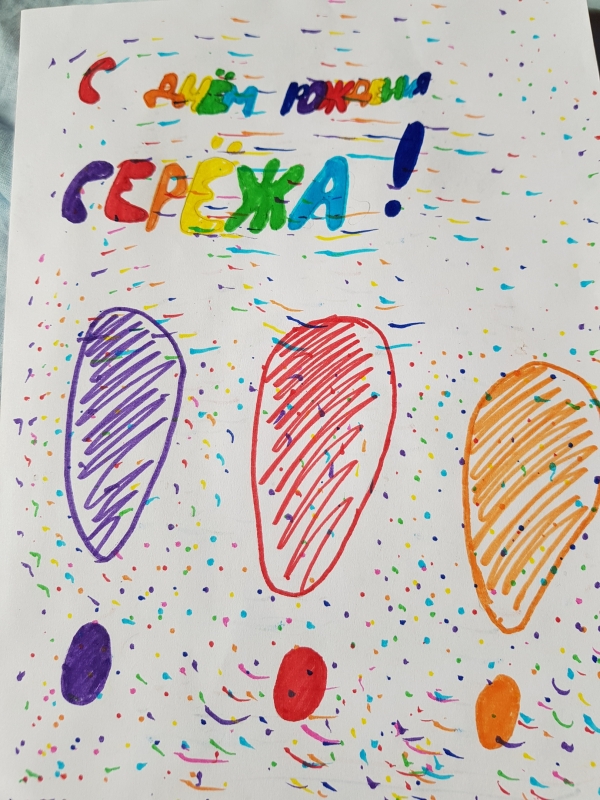 С ДНЁМ РОЖДЕНИЯ
СЕРЁЖА!